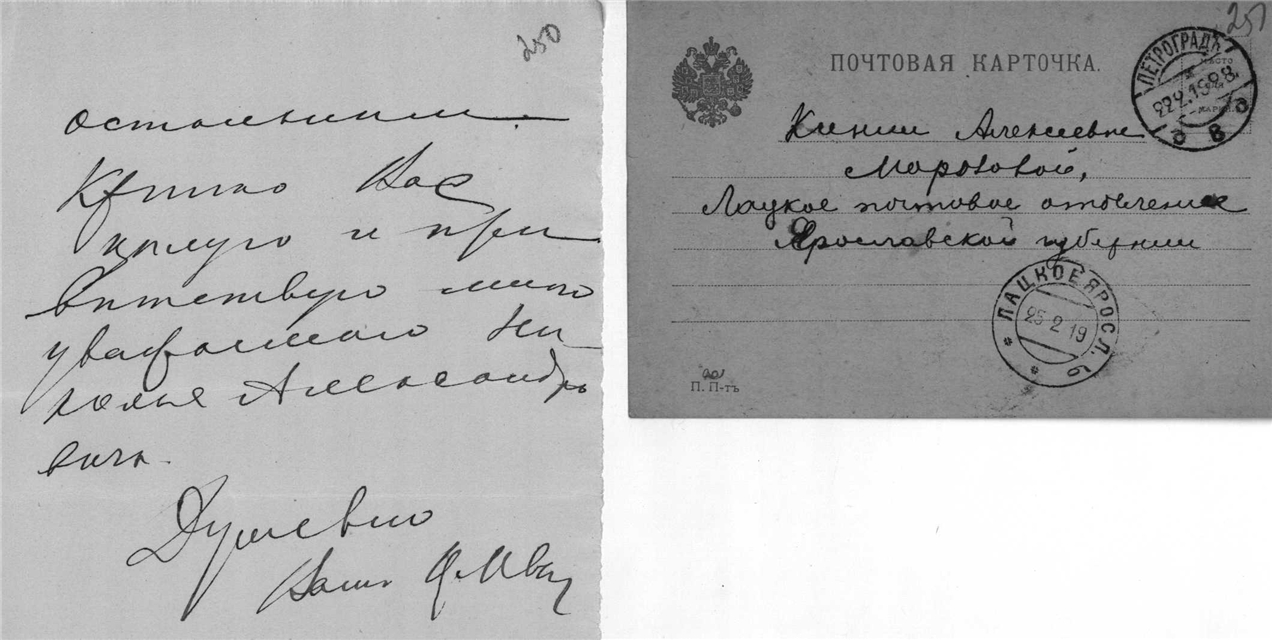 250
остальным.
Крѣпко Вас
цѣлую и при
вѣтствую много
уважаемого Ни
колая Александро
вича.
Душевно
Ваш
251
ПОЧТОВАЯ КАРТОЧКА.
ПЕТРОГРАДЪ
МѢСТО
ДЛЯ
МАРКИ
Ксении Алексеевне
Морозовой,
Лацкое почтовое отделение
Ярославской губернии
ЛАЦКОЕ ЯРОСЛ.
25 2 19
П. П-тъ